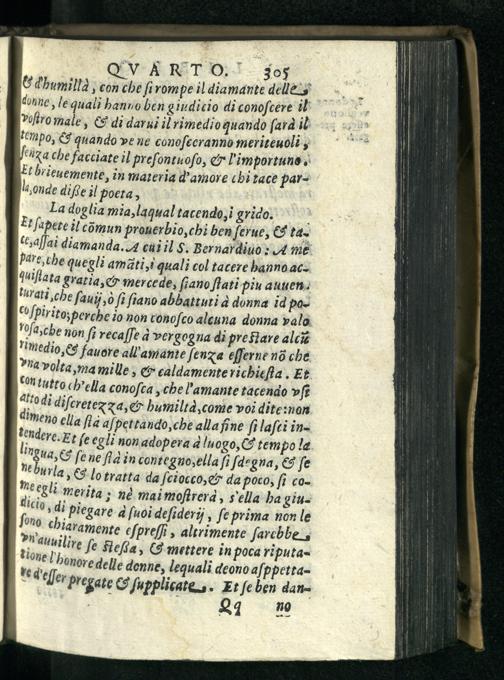 QVARTO. 305
& d'humiltà, con che si rompe il diamante delle
donne, le quali hanno ben giudicio di conoscere il
vostro male, & di darui il rimedio quando sarà il
tempo, & quando ve ne conosceranno meriteuoli,
senza che facciate il presontuoso, & l'importuno.
Et brieuemente, in materia d'amore chi tace par-
la, onde diße il poeta,
La doglia mia, laqual tacendo, i grido.
Et sapete il cōmun prouerbio, chi ben serue, & ta-
ce, assai diamanda. A cui il S. Bernardino: A me
pare, che quegli amāti, i quali col tacere hanno ac-
quistata gratia, & mercede, siano stati piu auuen-
turati, che sauij, ò si siano abbattuti à donna id po-
co spirito; perche io non conosco alcuna donna valo
rosa, che non si recasse à vergogna di prestare alcū
rimedio, & fauore all'amante senza esserne nō che
vna volta, ma mille, & caldamente richiesta. Et
con tutto ch'ella conosca, che l'amante tacendo vsi
atto di discretezza, & humiltà, come voi dite: non
dimeno ella stà aspettando, che alla fine si lasci in-
tendere. Et se egli non adopera à luogo, & tempo la
lingua, & se ne stà in contegno, ella si sdegna, & se
ne burla, & lo tratta da sciocco, & da poco, si co-
me egli merita; nè mai mostrerà, s'ella ha giu-
dicio, di piegare à suoi desiderij, se prima non le
sono chiaramente espressi, altrimente sarebbe
vn'auuilire se steßa, & mettere in poca riputa-
tione l'honore delle donne, lequali deono asppetta-
re d'esser pregate & supplicate. Et se ben dan-
Qq no